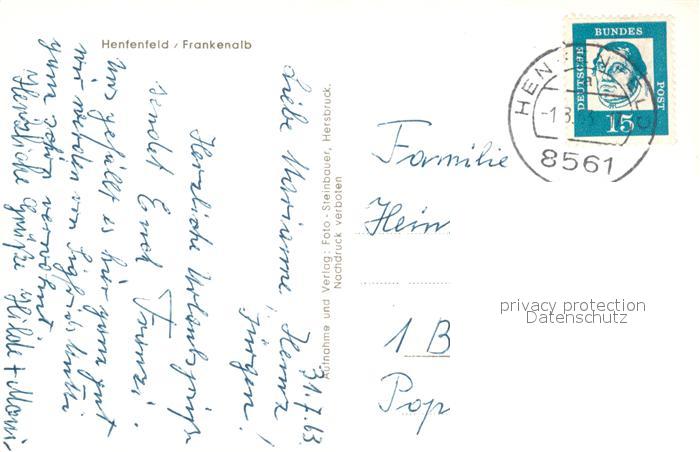 Henfenfeld / Frankenalb
31.7.63
Liebe Marianne, Heinz
Jürgen!
Herzliche Urlaubsgrüße
sendet Euch Franzi.
Uns gefällt es hier ganz gut
wir werden von
ganz schön verwöhnt
Herzliche Grüße Hilde +
Aufnahme und Verlag: Foto-Steinbauer, Hersbruck.
Nachdruck verboten
DEUTSCHE BUNDES POST
15
HENFENFELD
a
-1.8.63
8561
Familie
Hein
1 B
Pop
privacy protection
Datenschutz